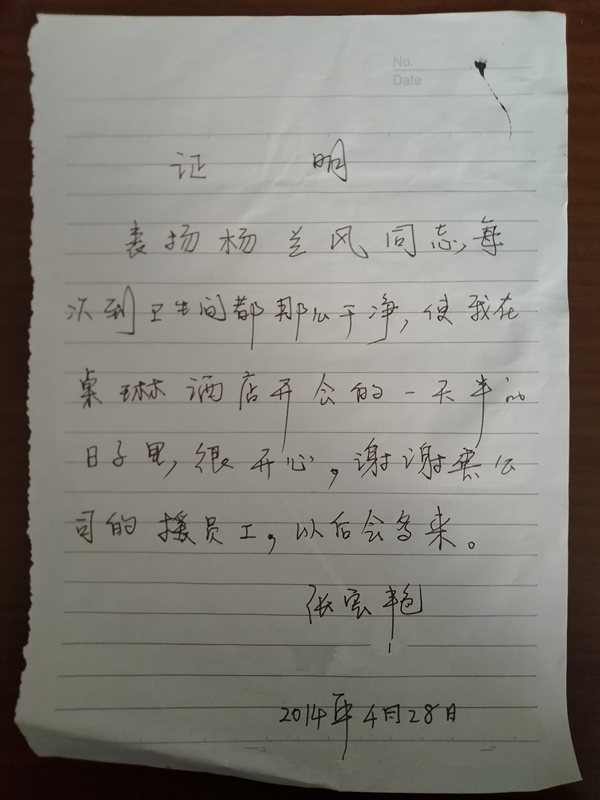 No.
Date
证 明
表扬杨兰风同志,每
次到卫生间都那么干净,使我在
桌琳酒店开会的一天半的
日子里,很开心,谢谢贵公
司的 员工,以后会多来。
张宏艳
2014年4月28日